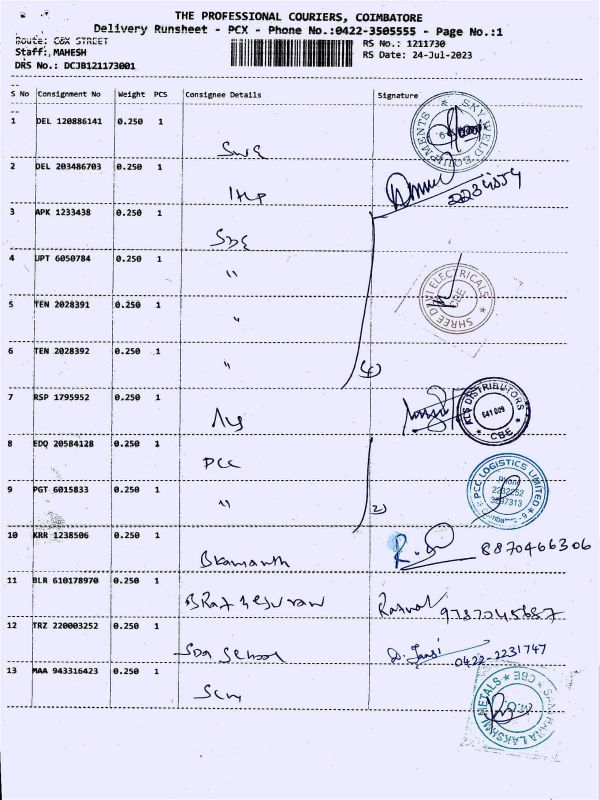 THE PROFESSIONAL COURIERS, COIMBATORE
Delivery Runsheet - PCX - Phone No.:0422-3505555 - Page No.:1
Route: C&X STREET RS No.: 1211730
Staff: MAHESH RS Date: 24-Jul-2023
DRS No.: DCJB121173001
S No Consignment No Weight PCS Consignee Details Signature
1 DEL 120886141 0.250 1
SKY WELD EQUIPMENTS
2 DEL 203486703 0.250 1
3 APK 1233438 0.250 1
SDE
4 UPT 6050784 0.250 1
"
SHREE DEVI ELECTRICALS CBE
5 TEN 2028391 0.250 1
"
6 TEN 2028392 0.250 1
"
(4)
7 RSP 1795952 0.250 1
DISTRIBUTORS 641 009 CBE
8 EDQ 20584128 0.250 1
PCC
PCC LOGISTICS LIMITED
Phone
9 PGT 6015833 0.250 1
"
2
10 KRR 1238506 0.250 1
8870466306
11 BLR 610178970 0.250 1
9787045687
12 TRZ 220003252 0.250 1
SDA School D. Jansi 0422-2231747
13 MAA 943316423 0.250 1
LAKSHMI METALS CBE